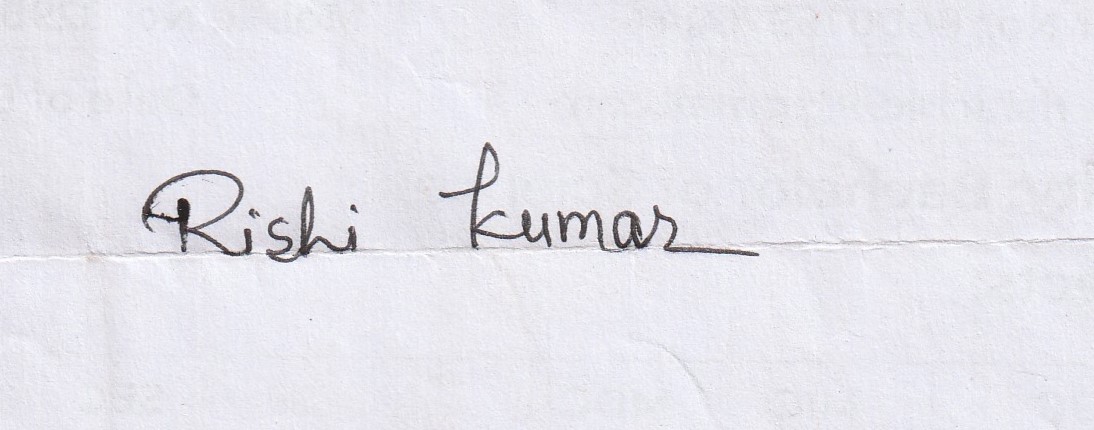 Rishi Kumar